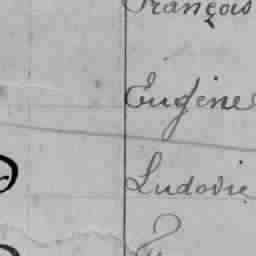 François
Eugène
Ludovic